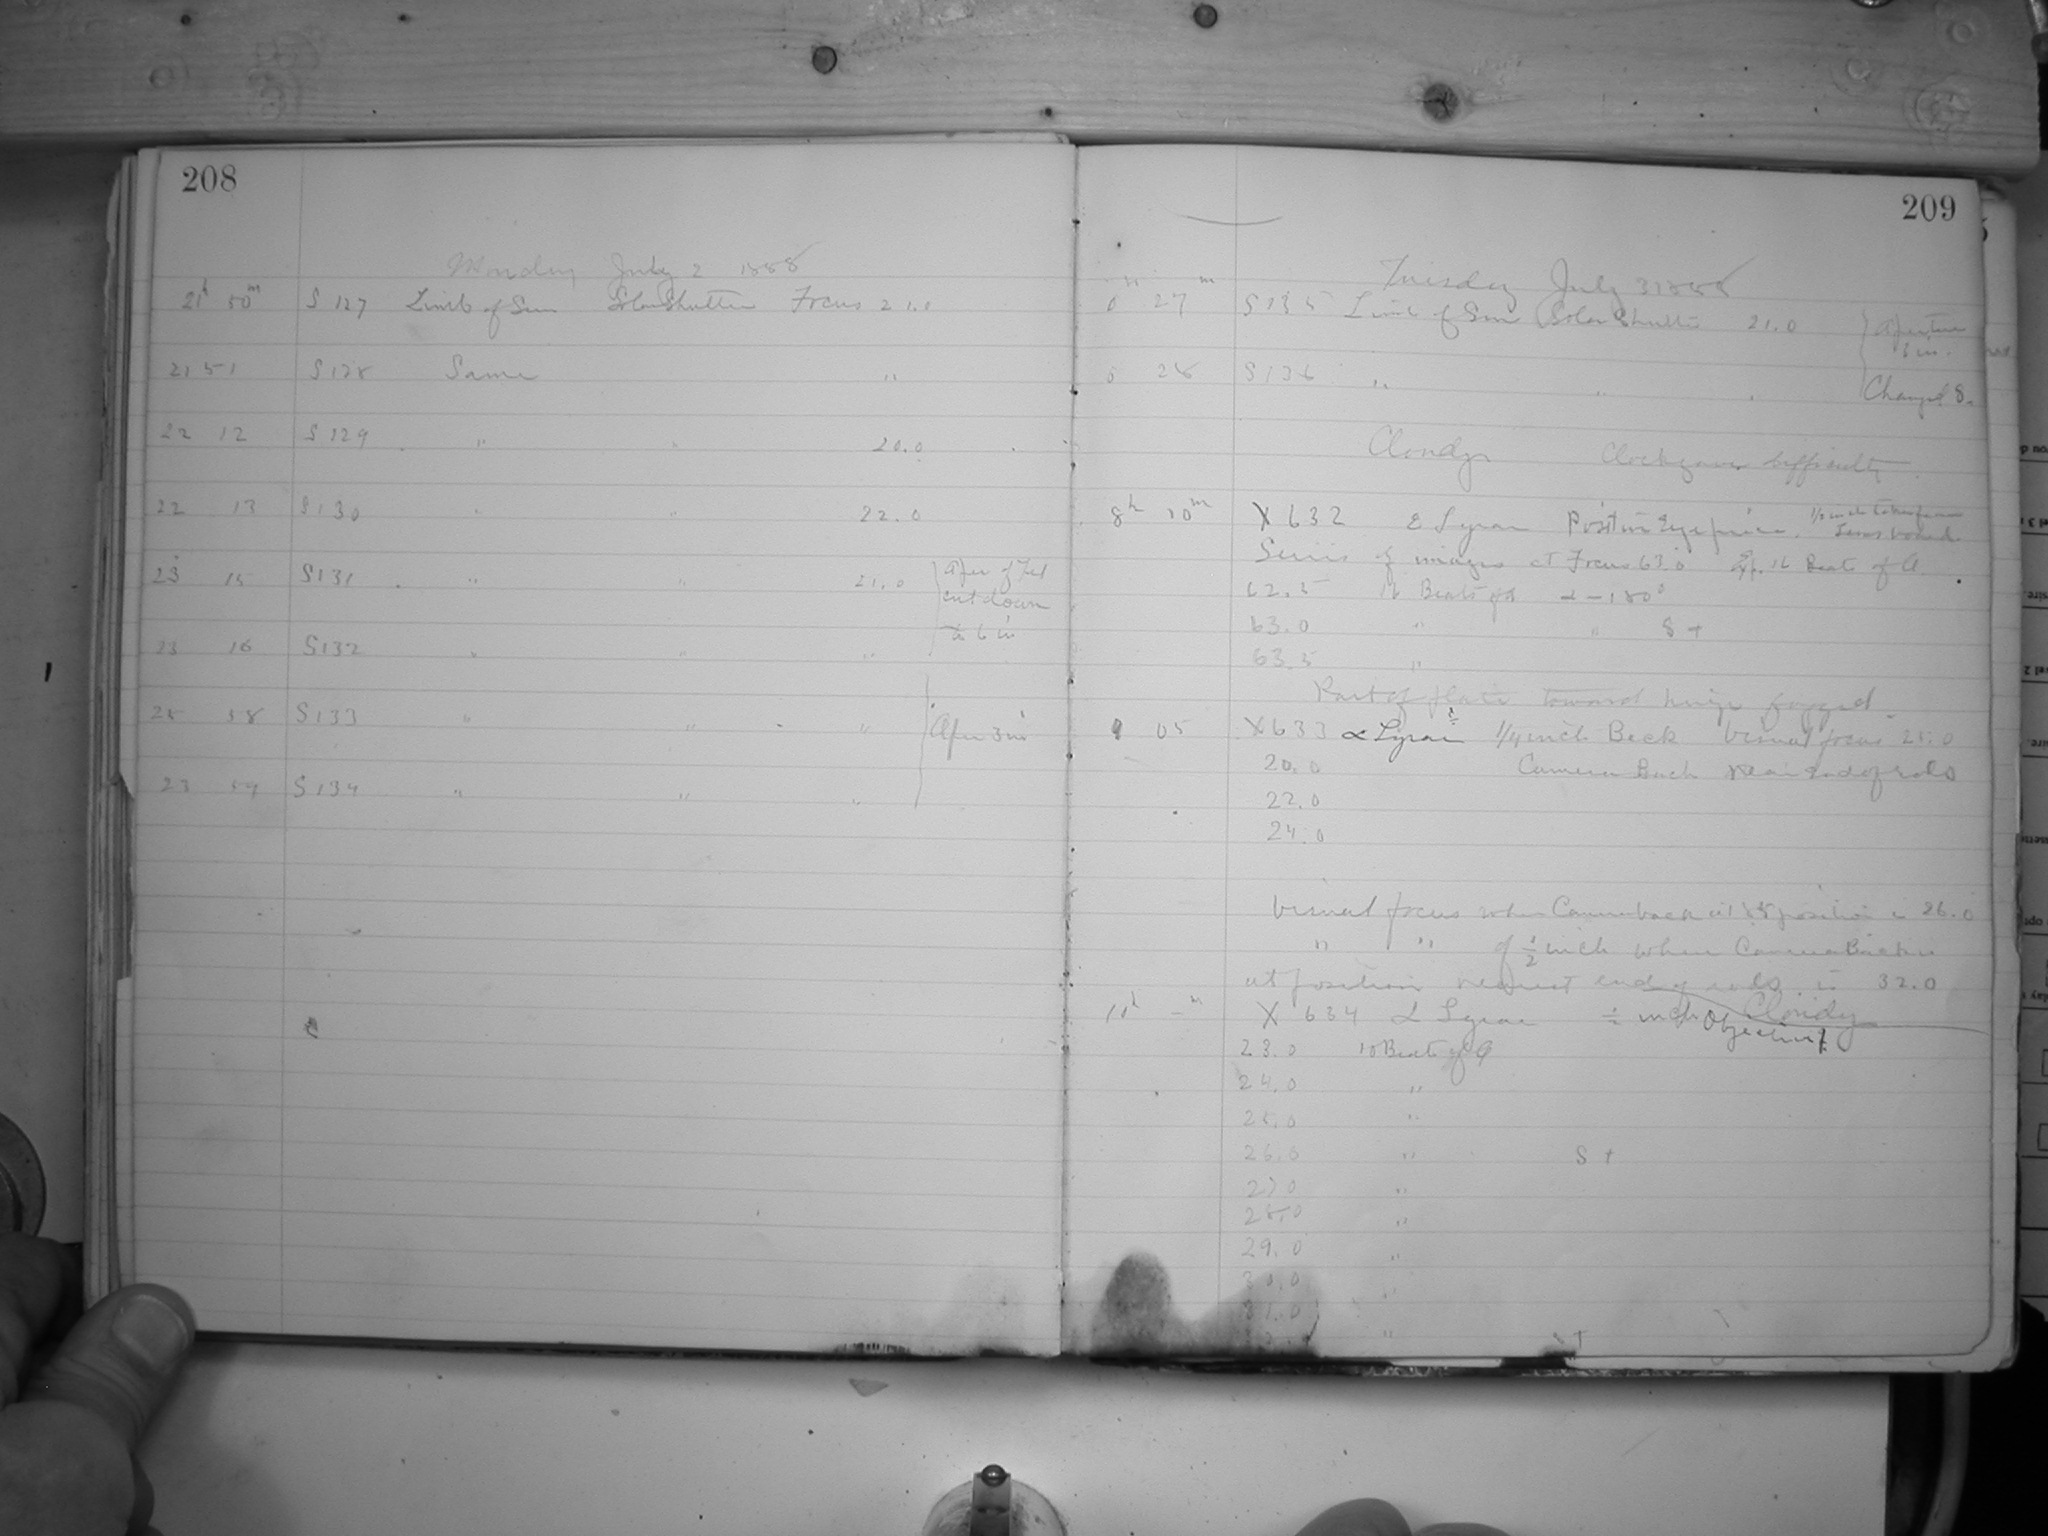 208
Monday July 2 1888
21h 50m S 127 Limb of Sun Solar Shutter Focus 21.0
21 51 S 128 Same "
22 12 S 129 " " 20.0
22 13 S 130 " " 22.0
23 15 S131 " " 21.0 Aper of Tel
cut down
to 6 in
23 16 S132 " " "
23 58 S133 " " " Aper 3 in
23 59 S134 " " "
209
Tuesday July 3 1888
0h 27m S135 Limb of Sun Solar Shutter 21.0 Aperture
3 in.
0 28 S136 " " " Changed 8.
Cloudy Clock gave difficulty.
8h 10m X 632 Lyrae Positive Eyepiece. 1/2 inch
Series of images at Focus 63.0 Exp. 16 Beats of
62.5 Beats of
63.0 " " S +
63.5 "
Part of plate toward hinge fogged
9 05 X633 α Lyrae 1/4 inch Beck Visual focus 25.0
20.0 Camera Back near end of rods
22.0
24.0
Visual focus when Camera back at position is 26.0
" " of 1/2 inch when Camera Back is
at position nearest end of rods is 32.0
Cloudy
10h – m X 634 α Lyrae 1/2 inch Objective
23.0 10 Beats of
24.0 "
25.0 "
26.0 " S +
27.0 "
28.0 "
29.0 "
30.0 "
31.0
"